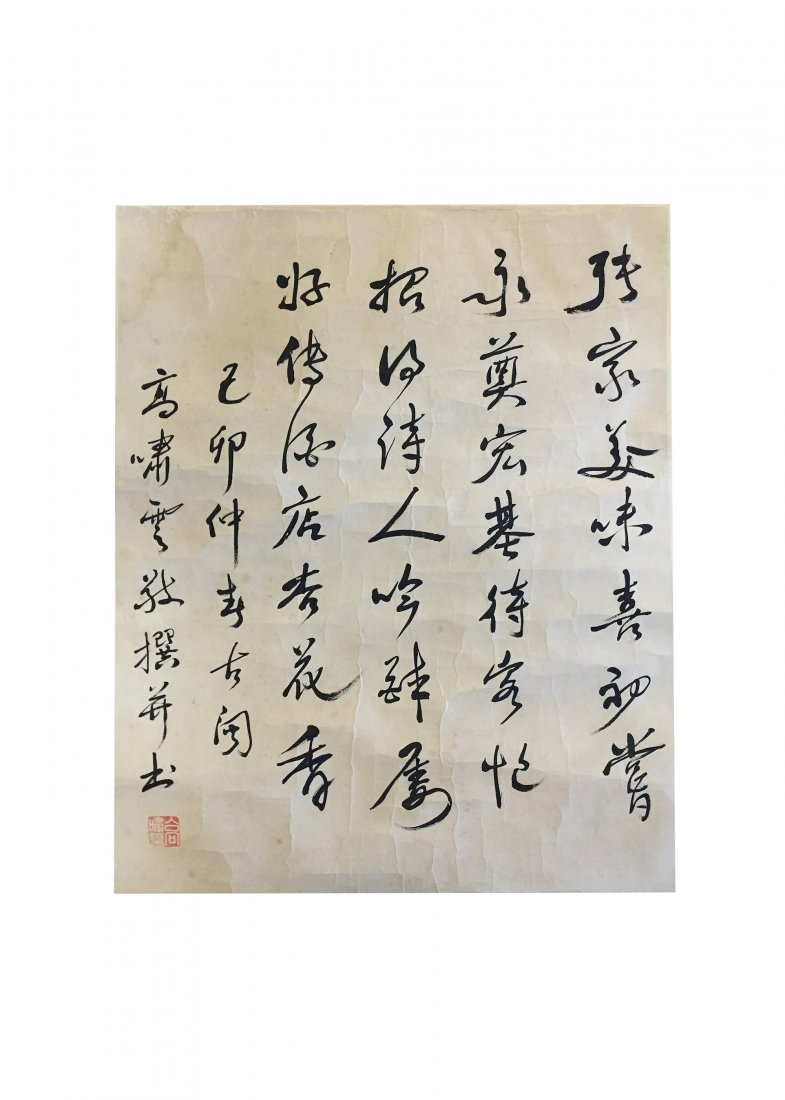 張家美味喜初嘗
永奠宏基待客忙
招得詩人吟
好傳酒店杏花香
己卯仲春古閩
高嘯雲敬撰并書